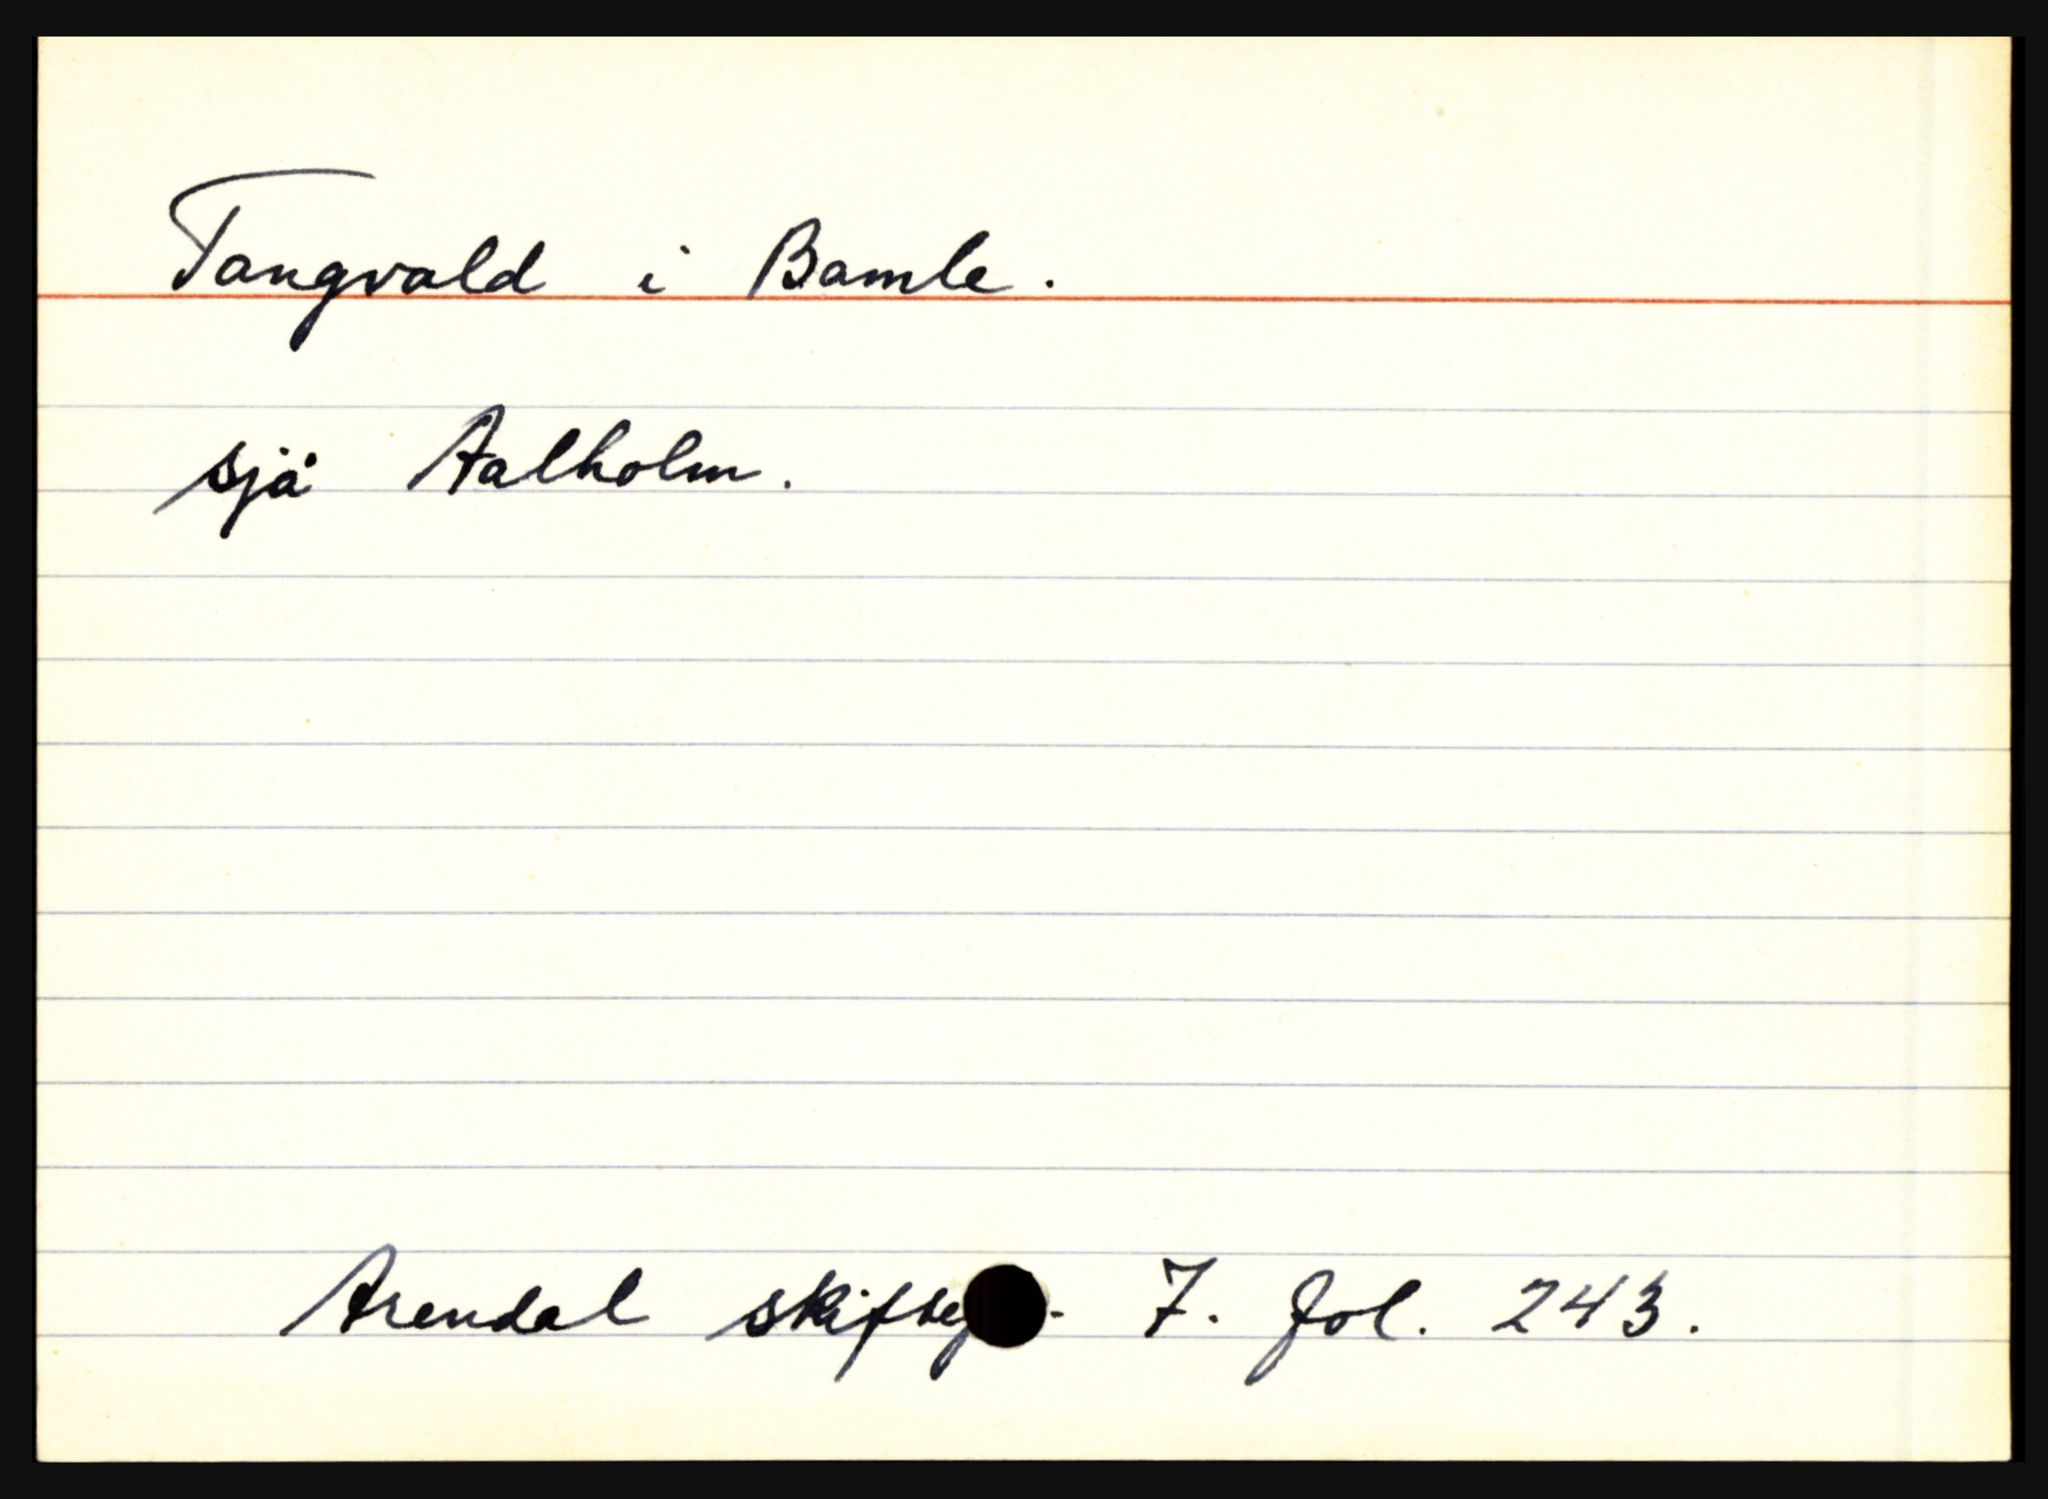 Tangvald i Bamle.
sjå Aalholm.
Arendal 7. fol. 243.